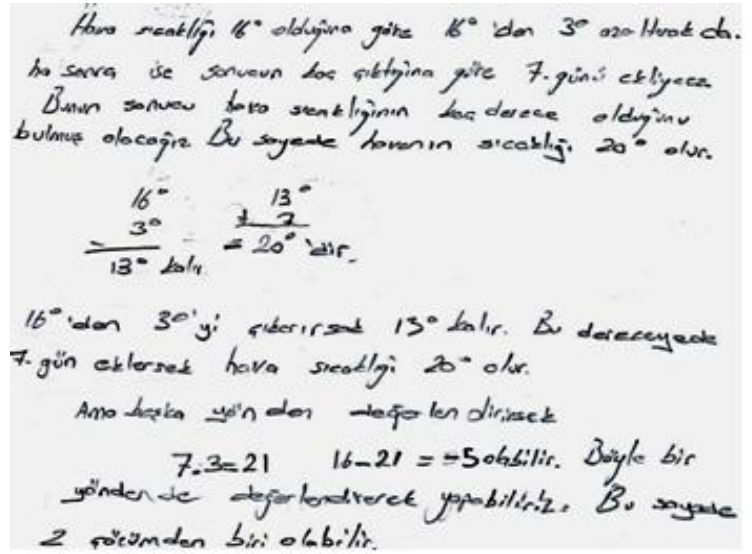 Hava sıcaklığı 16° olduğuna göre 16° 'den 3° azaltırsak da.
ha sonra ise sonucun kaç çıktığına göre 7. günü ekliyecez
Bunun sonucu hava sıcaklığının kaç derece olduğunu
bulmuş olacağız Bu sayede havanın sıcaklığı 20° olur.
16° 13°
3° + 7
- = 20° 'dir.
13° kalır.
16° 'dan 3°'yi çıkarırsak 13° kalır. Bu dereceyede
7. gün eklersek hava sıcaklığı 20° olur.
Ama başka yönden değerlendirirsek
7.3=21 16-21 = -5 olabilir. Böyle bir
yöndende değerlendirerek yapabiliriz. Bu sayede
2 çözümden biri olabilir.